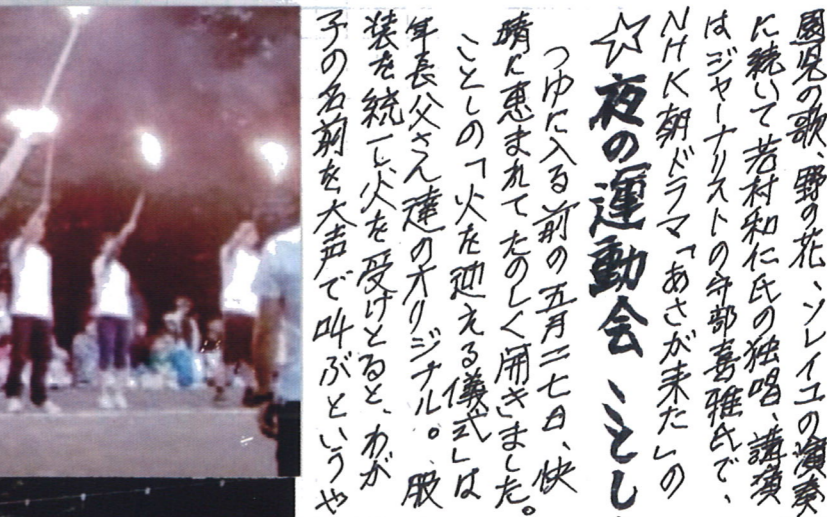 園児の歌、野の花、ソレイユの演奏
に続いて若村和仁氏の独唱、講演
はジャーナリストの守部喜雅氏で、
NHK朝ドラマ「あさが来た」の
☆夜の運動会 ことし
つゆに入る前の五月二七日、快
晴に恵まれてたのしく開きました。
ことしの「火を迎える儀式」は
年長父さん達のオリジナル。服
装を統一し火を受けとると、わが
子の名前を大声で叫ぶというや